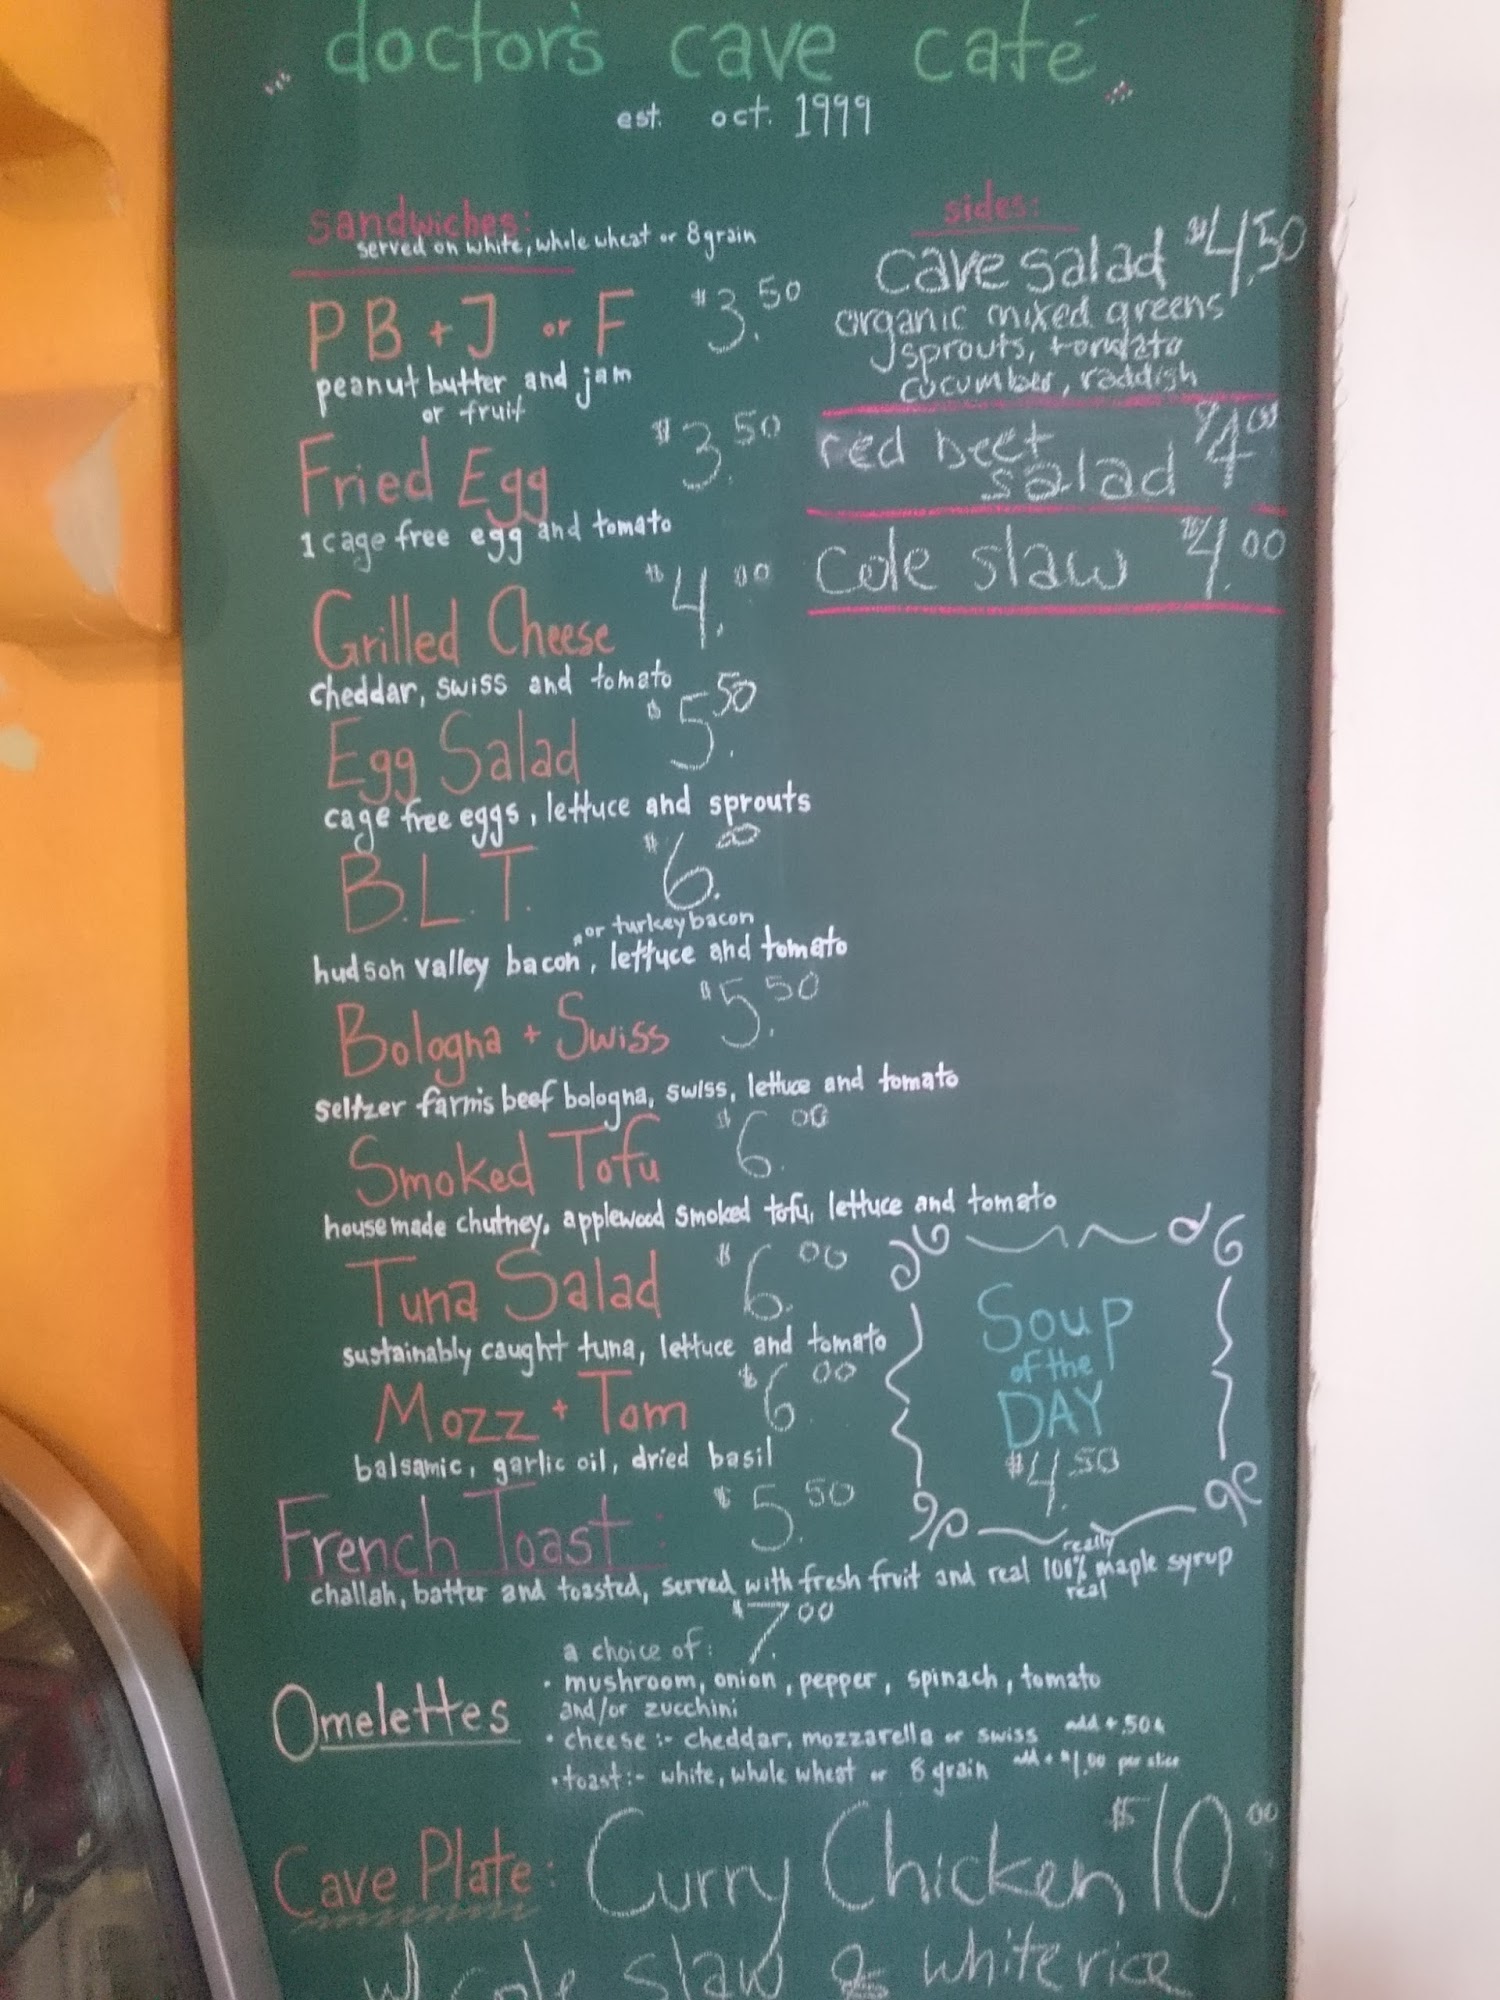 doctor's cave café
est. oct. 1999
sandwiches:
served on white, whole wheat or 8 grain
PB + J or F $3.50
peanut butter and jam
or fruit
Fried Egg $3.50
1 cage free egg and tomato
Grilled Cheese $4.00
cheddar, swiss and tomato
Egg Salad $5.50
cage free eggs, lettuce and sprouts
B.L.T. $6.00
or turkey bacon
hudson valley bacon, lettuce and tomato
Bologna + Swiss $5.50
seltzer farms beef bologna, swiss, lettuce and tomato
Smoked Tofu $6.00
house made chutney, applewood smoked tofu, lettuce and tomato
Tuna Salad $6.00
sustainably caught tuna, lettuce and tomato
Mozz + Tom $6.00
balsamic, garlic oil, dried basil
sides:
cave salad $4.50
organic mixed greens
sprouts, tomato
cucumber, raddish
red beet $4.00
salad
cole slaw $4.00
Soup
of the
DAY
$4.50
French Toast: $5.50
really
challah, batter and toasted, served with fresh fruit and real 100% maple syrup
real
$7.00
a choice of:
Omelettes
• mushroom, onion, pepper, spinach, tomato
and/or zucchini
• cheese :- cheddar, mozzarella or swiss add + .50¢
• toast :- white, whole wheat or 8 grain add + $1.00 per slice
Cave Plate: Curry Chicken $10.00
w/ cole slaw & white rice